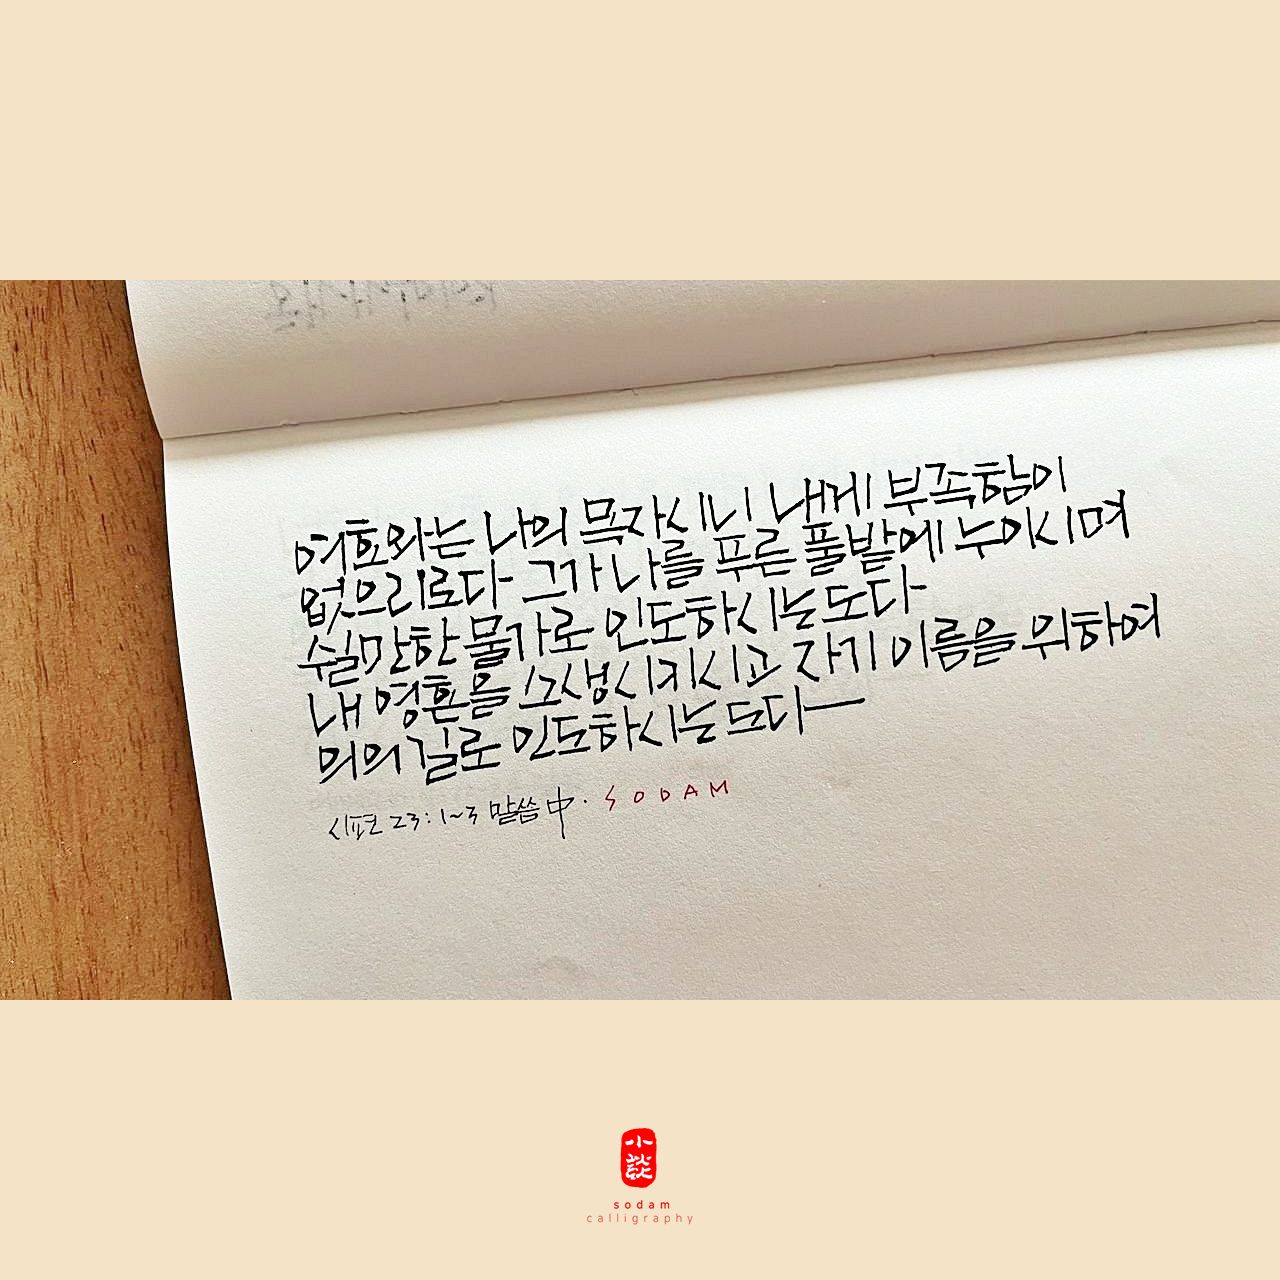 여호와는 나의 목자시니 내게 부족함이
없으리로다 그가 나를 푸른 풀밭에 누이시며
쉴만한 물가로 인도하시는도다
내 영혼을 소생시키시고 자기 이름을 위하여
의의 길로 인도하시는도다
시편 23:1~3 말씀 中. SODAM
小談
sodam
calligraphy